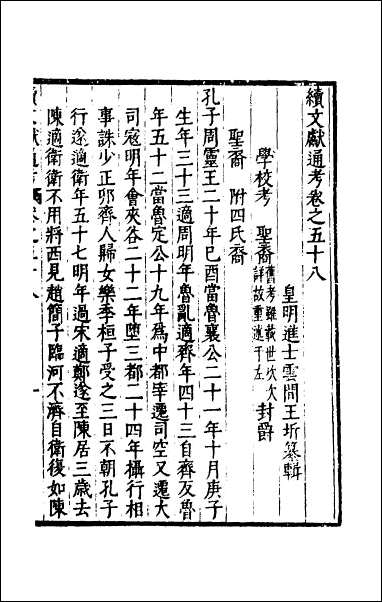 續文獻通考卷之五十八
皇明進士雲間王圻纂輯
學校考 聖裔 舊考雖載世次欠詳故重述于左 封爵
聖裔 附四氏裔
孔子周靈王二十年巳酉當魯襄公二十一年十月庚子
生年三十三適周明年魯亂適齊年四十三自齊反魯
年五十二當魯定公十九年為中都宰遷司空又遷大
司寇明年會夾谷二十二年墮三都二十四年攝行相
事誅少正卯齊人歸女樂季桓子受之三日不朝孔子
行遂適衛年五十七明年過宋適鄭遂至陳居三歲去
陳適衛衛不用將西見趙簡子臨河不濟自衛後如陳